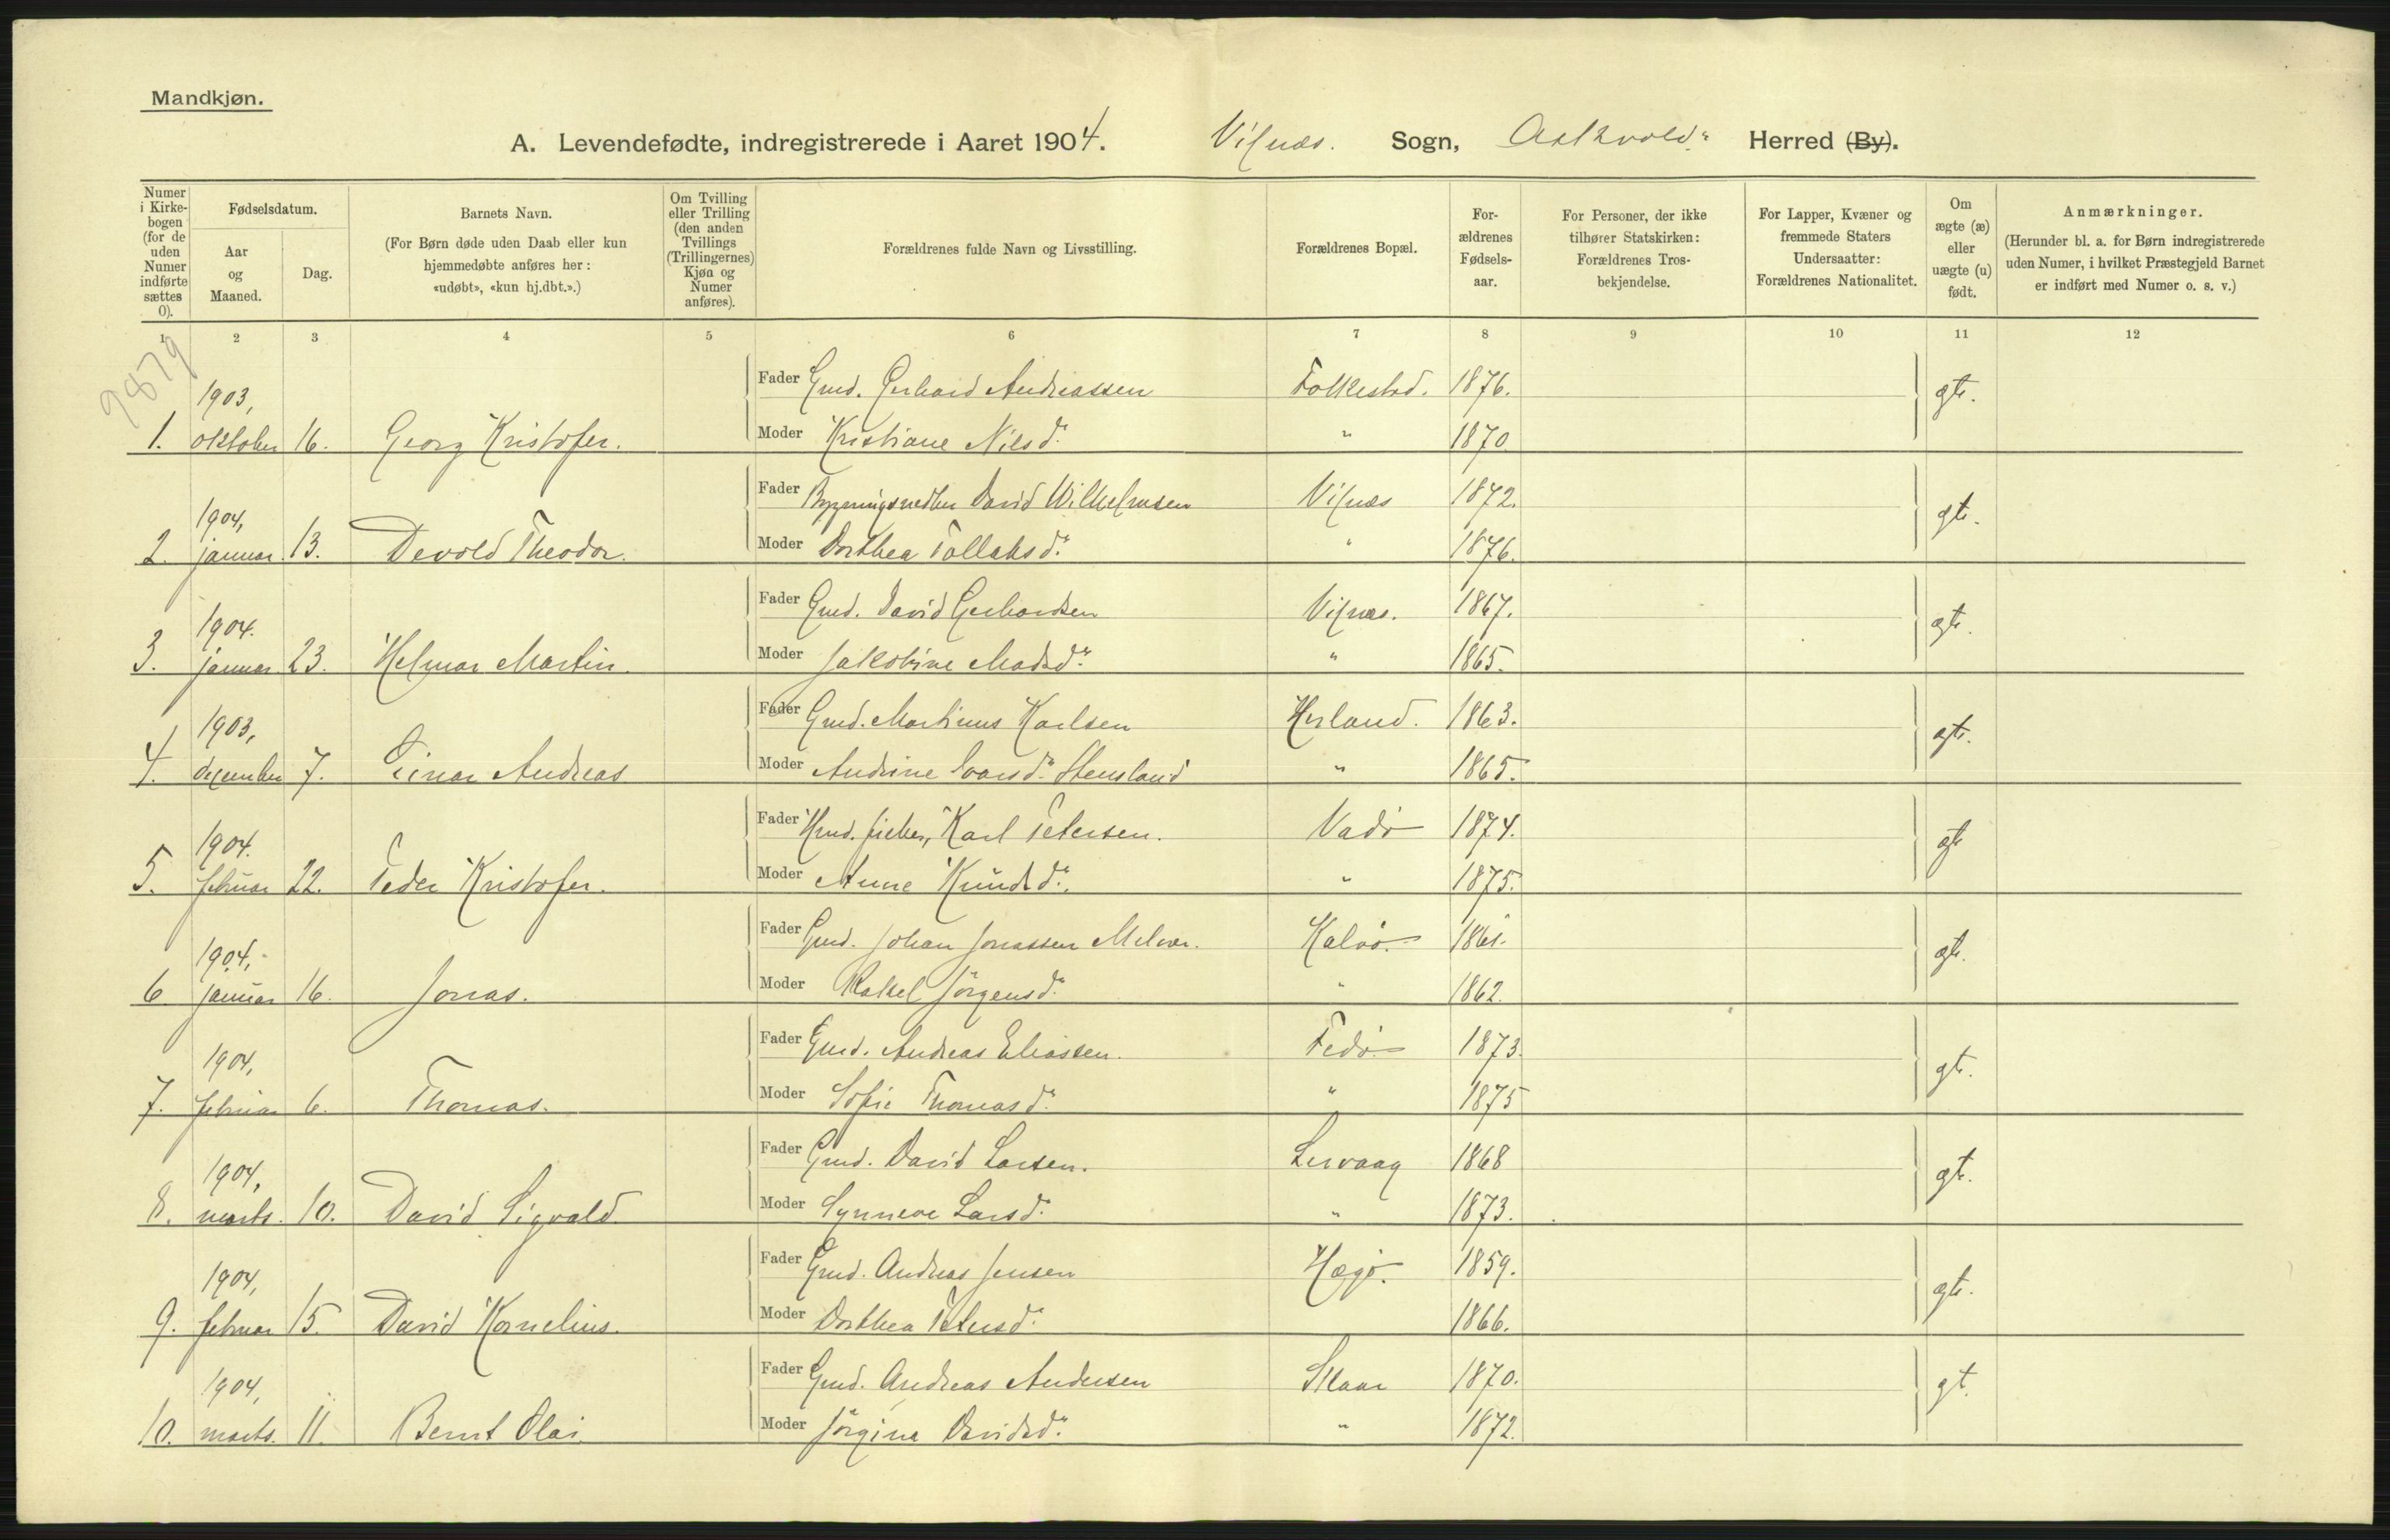 Mandkjøn.
A. Levendefødte, indregistrerede i Aaret 1904. Vilnæs. Sogn, Askvold Herred (By).
Numer i Kirkebogen (for de uden Numer indførte sættes 0).
Fødselsdatum.
Aar og Maaned.
Dag.
Barnets Navn.
(For Børn døde uden Daab eller kun hjemmedøbte anføres her: «udøbt», «kun hj.dbt.».)
Om Tvilling eller Trilling (den anden Tvillings (Trillingernes) Kjøn og Numer anføres).
Forældrenes fulde Navn og Livsstilling.
Forældrenes Bopæl.
For-ældrenes Fødsels-aar.
For Personer, der ikke tilhører Statskirken: Forældrenes Tros-bekjendelse.
For Lapper, Kvæner og fremmede Staters Undersaatter: Forældrenes Nationalitet.
Om ægte (æ) eller uægte (u) født.
Anmærkninger.
(Herunder bl. a. for Børn indregistrerede uden Numer, i hvilket Præstegjeld Barnet er indført med Numer o. s. v.)
1 2 3 4 5 6 7 8 9 10 11 12
9879
1903, Fader Gmd. Gerhard Andreassen Folkestad. 1876. gt.
1. oktober 16. Georg Kristofer. Moder Kristiane Nilsd. " 1870
1904, Fader David Wilhelmsen Vilnæs 1872. gt.
2. januar 13. Devold Theodor. Moder Dorthea Tollaksd. " 1876.
1904. Fader Gmd. David Gerhardsen Vilnæs. 1867. gt.
3. januar 23. Helmar Martin. Moder Jakobine Madsd. " 1865.
1903, Fader Gmd. Martinus Karlsen Herland. 1863. gt.
4. desember 7. Einar Andreas Moder Andrine Ivarsd. Stensland " 1865.
1904. Fader Hmd. fisker, Karl Petersen. Vadø 1874. gt
5. februar 22. Peder Kristofer. Moder Anne Knudsd. " 1875.
1904, Fader Gmd. Johan Jonassen Melvær. Kalvø. 1861. gt.
6 januar 16. Jonas. Moder Rakel Jörgensd. " 1862.
1904, Fader Gmd. Andreas Eliassen. Fedø 1873. gt.
7. februar 6. Thomas. Moder Sofie Thomasd. " 1875
1904, Fader Gmd. David Larsen. Lervaag 1868 gt.
8. marts. 10. David Sigvald. Moder Synneve Larsd. " 1873.
1904, Fader Gmd. Andreas Jensen Hægø. 1859. gt.
9. februar 15. David Kornelius. Moder Dorthea Petersd. 1866.
1904, Fader Gmd. Andreas Andersen Skaar 1870. gt.
10. marts. 11. Bernt Olai. Moder Jörgina Davidsd. " 1872.